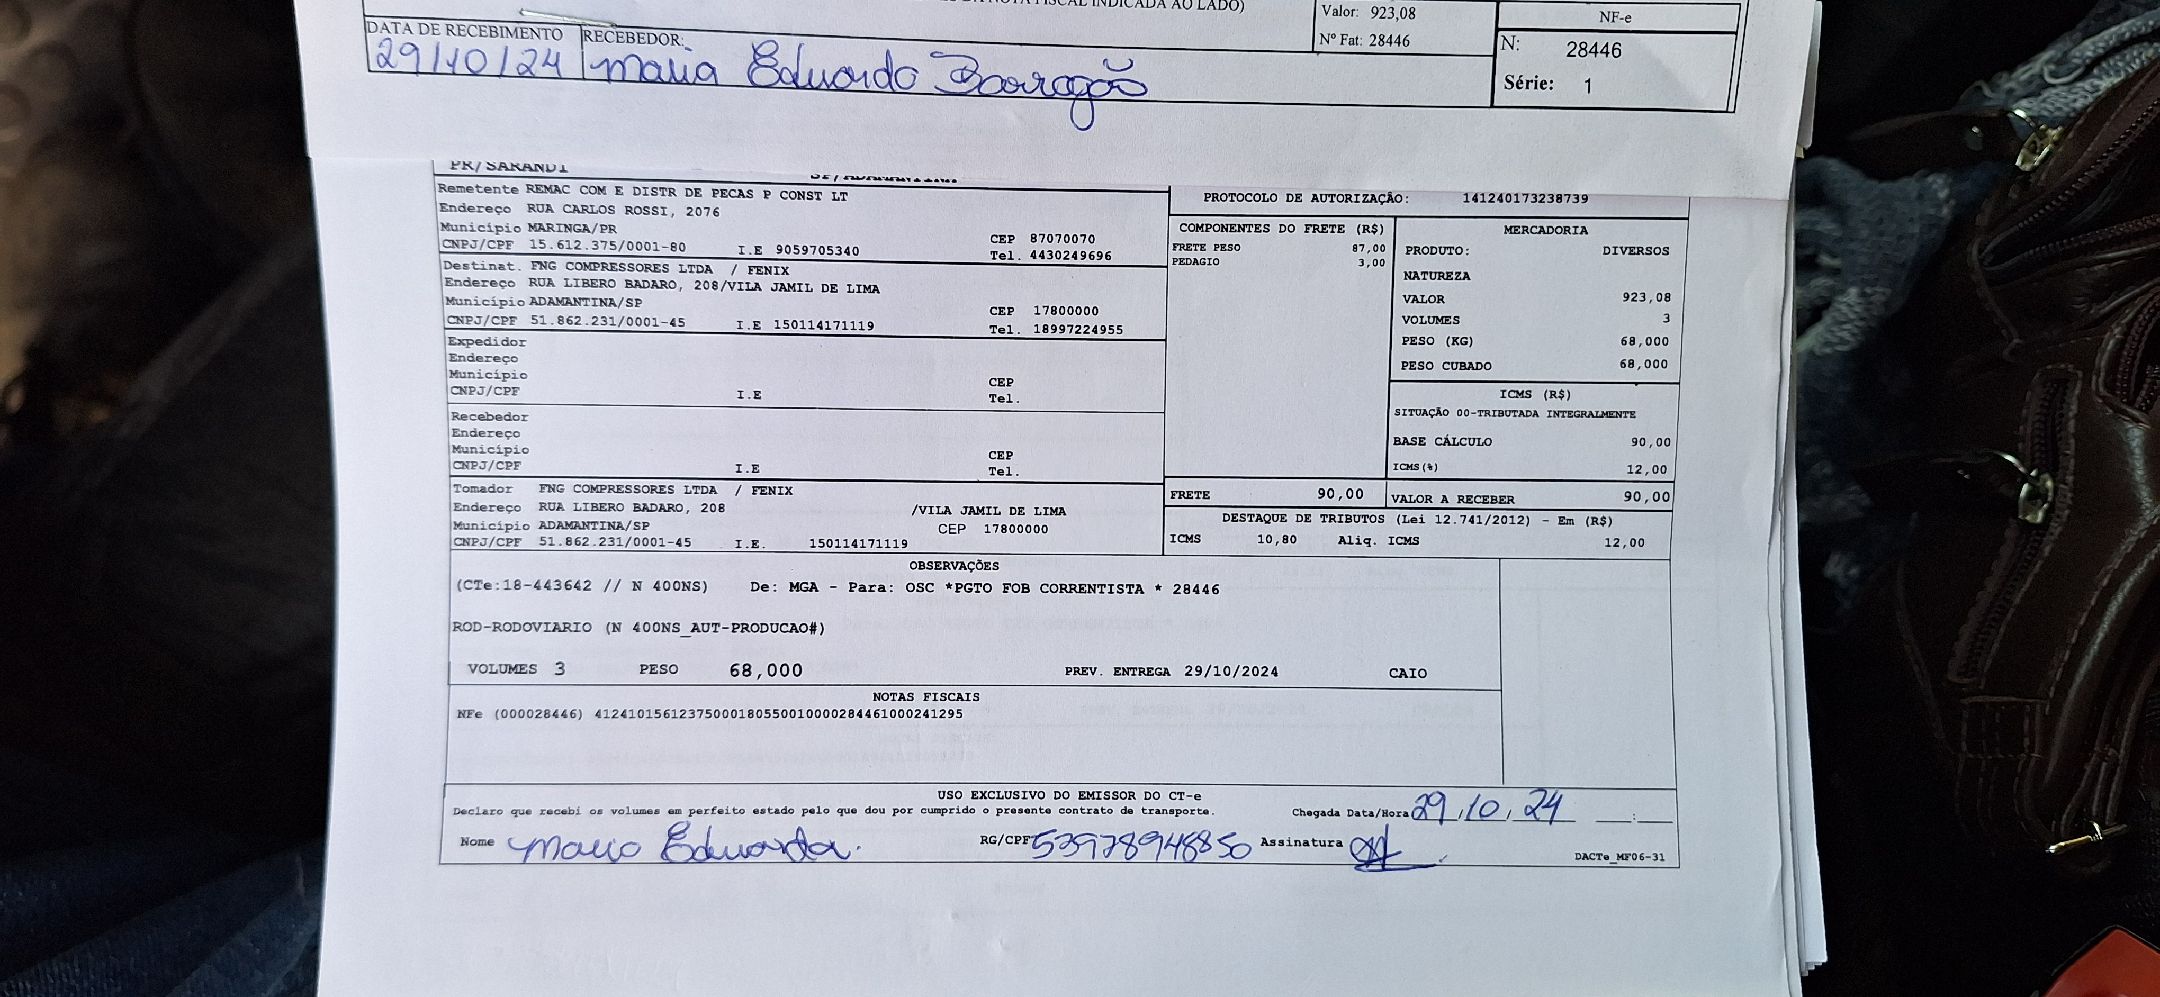 DA NOTA FISCAL INDICADA AO LADO)
Valor: 923,08
Nº Fat: 28446
NF-e
N: 28446
Série: 1
DATA DE RECEBIMENTO RECEBEDOR:
29/10/24 Maria Eduarda Barragão
PR/SARANDI
Remetente REMAC COM E DISTR DE PECAS P CONST LT
Endereço RUA CARLOS ROSSI, 2076
Município MARINGA/PR
CEP 87070070
CNPJ/CPF 15.612.375/0001-80 I.E 9059705340 Tel. 4430249696
Destinat. FNG COMPRESSORES LTDA / FENIX
Endereço RUA LIBERO BADARO, 208/VILA JAMIL DE LIMA
Município ADAMANTINA/SP CEP 17800000
CNPJ/CPF 51.862.231/0001-45 I.E 150114171119 Tel. 18997224955
Expedidor
Endereço
Município CEP
CNPJ/CPF I.E Tel.
Recebedor
Endereço
Município CEP
CNPJ/CPF I.E Tel.
Tomador FNG COMPRESSORES LTDA / FENIX
Endereço RUA LIBERO BADARO, 208 /VILA JAMIL DE LIMA
Município ADAMANTINA/SP CEP 17800000
CNPJ/CPF 51.862.231/0001-45 I.E. 150114171119
PROTOCOLO DE AUTORIZAÇÃO: 141240173238739
COMPONENTES DO FRETE (R$)
FRETE PESO 87,00
PEDAGIO 3,00
MERCADORIA
PRODUTO: DIVERSOS
NATUREZA
VALOR 923,08
VOLUMES 3
PESO (KG) 68,000
PESO CUBADO 68,000
ICMS (R$)
SITUAÇÃO 00-TRIBUTADA INTEGRALMENTE
BASE CÁLCULO 90,00
ICMS(%) 12,00
FRETE 90,00 VALOR A RECEBER 90,00
DESTAQUE DE TRIBUTOS (Lei 12.741/2012) - Em (R$)
ICMS 10,80 Aliq. ICMS 12,00
OBSERVAÇÕES
(CTe:18-443642 // N 400NS) De: MGA - Para: OSC *PGTO FOB CORRENTISTA * 28446
ROD-RODOVIARIO (N 400NS_AUT-PRODUCAO#)
VOLUMES 3 PESO 68,000 PREV. ENTREGA 29/10/2024 CAIO
NOTAS FISCAIS
NFe (000028446) 41241015612375000180550010000284461000241295
USO EXCLUSIVO DO EMISSOR DO CT-e
Declaro que recebi os volumes em perfeito estado pelo que dou por cumprido o presente contrato de transporte. Chegada Data/Hora 29/10/24 __:__
Nome Maria Eduarda. RG/CPF 53978948850 Assinatura
DACTe_MF06-31